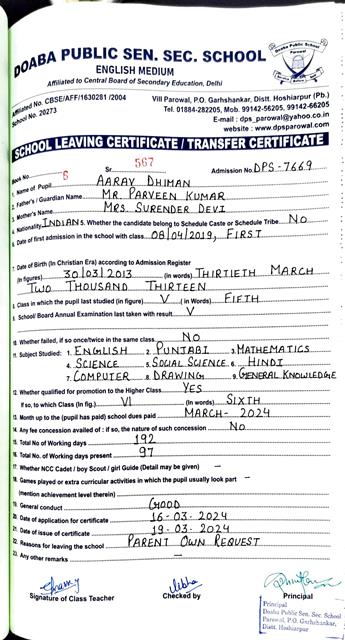 DOABA PUBLIC SEN. SEC. SCHOOL
ENGLISH MEDIUM
Affiliated to Central Board of Secondary Education, Delhi
Affiliated No. CBSE/AFF/1630281 /2004
School No. 20273
Vill Parowal, P.O. Garhshankar, Distt. Hoshiarpur (Pb.)
Tel. 01884-282205, Mob. 99142-56205, 99142-66205
E-mail : dps_parowal@yahoo.co.in
website : www.dpsparowal.com
SCHOOL LEAVING CERTIFICATE / TRANSFER CERTIFICATE
Book No. 6 Sr. 567 Admission No. DPS-7669
1. Name of Pupil AARAV DHIMAN
2. Father's / Guardian Name MR. PARVEEN KUMAR
3. Mother's Name MRS. SURENDER DEVI
4. Nationality INDIAN 5. Whether the candidate belong to Schedule Caste or Schedule Tribe NO
6. Date of first admission in the school with class 08/04/2019, FIRST
7. Date of Birth (In Christian Era) according to Admission Register
(In figures) 30/03/2013 (in words) THIRTIETH MARCH
TWO THOUSAND THIRTEEN
8. Class in which the pupil last studied (in figure) V (in Words) FIFTH
9. School/ Board Annual Examination last taken with result V
10. Whether failed, if so once/twice in the same class NO
11. Subject Studied: 1. ENGLISH 2. PUNJABI 3. MATHEMATICS
4. SCIENCE 5. SOCIAL SCIENCE 6. HINDI
7. COMPUTER 8. DRAWING 9. GENERAL KNOWLEDGE
12. Whether qualified for promotion to the Higher Class YES
If so, to which Class (In fig.) VI (In words) SIXTH
13. Month up to the (pupil has paid) school dues paid MARCH- 2024
14. Any fee concession availed of : if so, the nature of such concession NO
15. Total No of Working days 192
16. Total No. of Working days present 97
17. Whether NCC Cadet / boy Scout / girl Guide (Detail may be given) -
18. Games played or extra curricular activities in which the pupil usually look part -
(mention achievement level therein)
19. General conduct GOOD
20. Date of application for certificate 16-03-2024
21. Date of issue of certificate 19-03-2024
22. Reasons for leaving the school PARENT OWN REQUEST
23. Any other remarks -
Signature of Class Teacher Checked by Principal
Principal
Doaba Public Sen. Sec. School
Parowal, P.O. Garhshankar,
Distt. Hoshiarpur